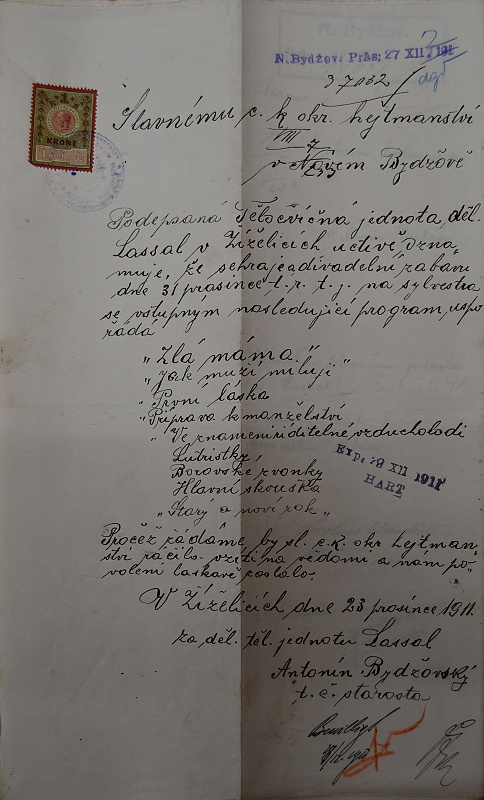 N. Bydžov.
N. Bydžov. Präs: 27 XII. 1911
37062
Slavnému c. k okr. hejtmanství
VIII
v Novém Bydžově
KRONE
Podepsaná Tělocvičná jednota, děl.
Lassal v Žíželicích uctivě ozna„
muje, že sehraje a divadelní zabavu
dne 31 prasince t. r. t. j. na sylvestra
se vstupným nasledující program, uspo
řádá
„Zlá máma."
„Jak muži milují"
„První láska
„Příprava k manželství
„Ve znamení řiditelné vzducholodi
Lutristky
Borovské zvonky
Hlavní skouška
„Starý a nový rok„
Exp. 29 XII 1911
HART
Pročež žádáme, by sl. c. k. okr hejtman„
ství ráčilo vzíti na vědomí a nám po„
volení laskavě poslalo.
V Žíželicích dne 23 prosince 1911.
za děl. těl. jednotu Lassal
Antonín Bydžovský
t. č. starosta